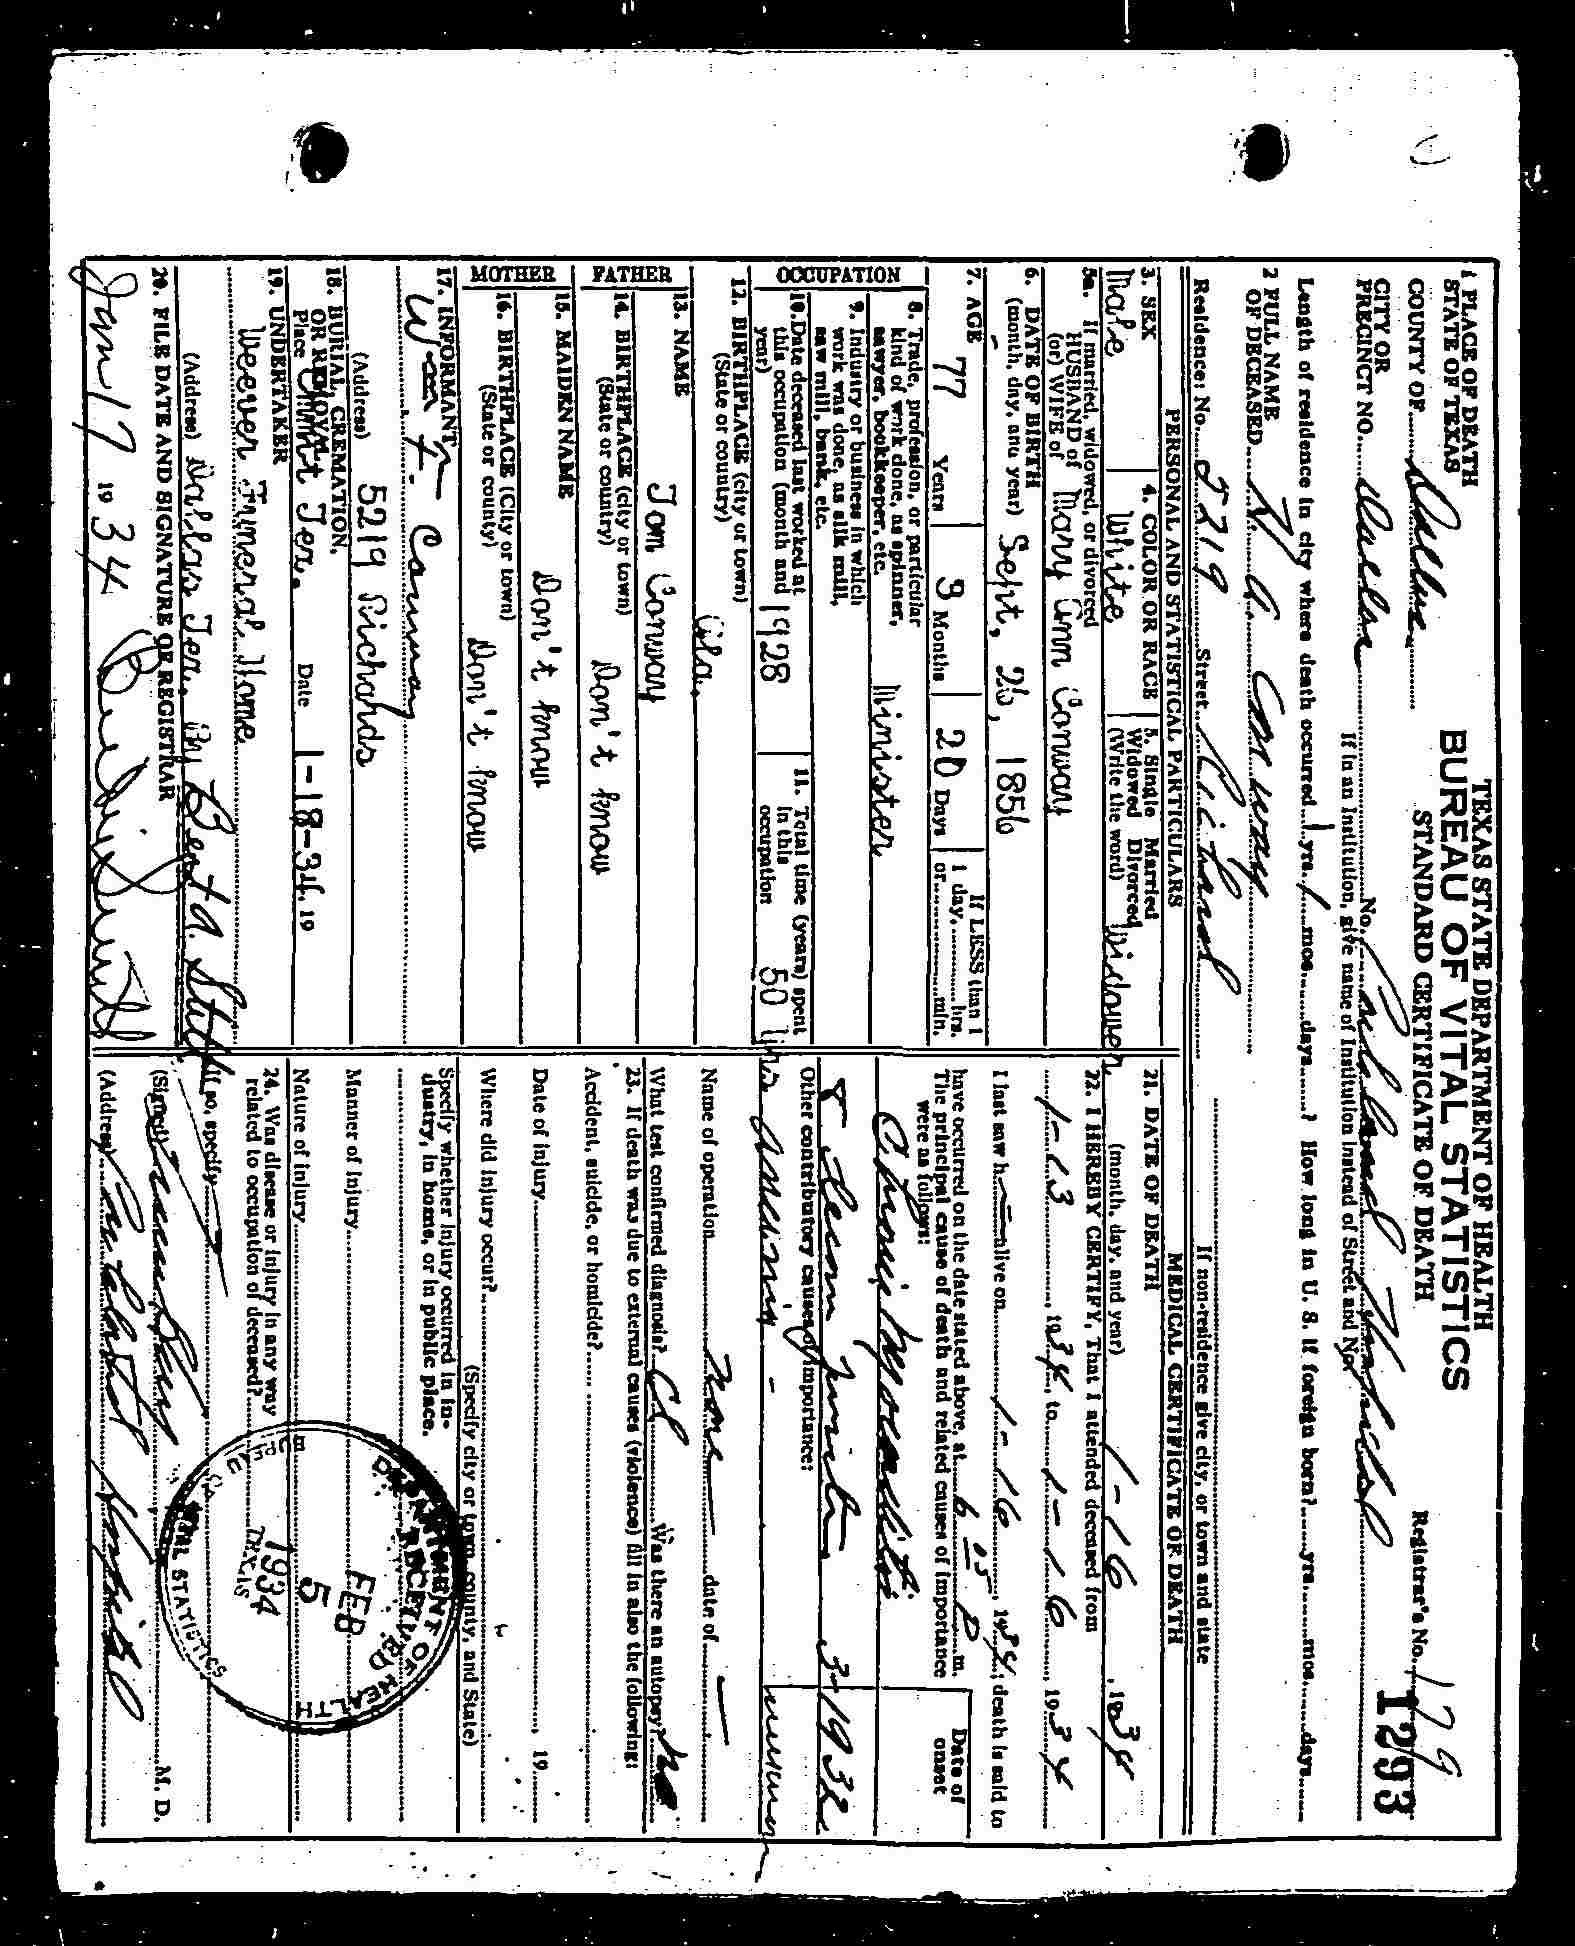 TEXAS STATE DEPARTMENT OF HEALTH
BUREAU OF VITAL STATISTICS
STANDARD CERTIFICATE OF DEATH
1 PLACE OF DEATH
STATE OF TEXAS
COUNTY OF Dallas
CITY OR
PRECINCT NO. Dallas No.
Registrar's No. 179
1293
If in an Institution, give name of Institution instead of Street and No.
Length of residence in city where death occurred 1 yrs. 1 mos. days ? How long in U. S. if foreign born? yrs. mos. days
2 FULL NAME
OF DECEASED Conway
Residence: No. 5219 Street Richard
If non-residence give city, or town and state
PERSONAL AND STATISTICAL PARTICULARS
3. SEX
Male
4. COLOR OR RACE
White
5. Single Married
Widowed Divorced
(Write the word) Widower
5a. If married, widowed, or divorced
HUSBAND of
(or) WIFE of Mary Ann Conway
6. DATE OF BIRTH
(month, day, and year) Sept, 26, 1856
7. AGE
77 Years 3 Months 20 Days
If LESS than 1
1 day, hrs.
or min.
OCCUPATION
8. Trade, profession, or particular
kind of work done, as spinner,
sawyer, bookkeeper, etc. Minister
9. Industry or business in which
work was done, as silk mill,
saw mill, bank, etc.
10. Date deceased last worked at
this occupation (month and
year) 1928
11. Total time (years) spent
in this
occupation 50 yrs
12. BIRTHPLACE (city or town)
(State or country) Ala.
FATHER
13. NAME Tom Conway
14. BIRTHPLACE (city or town)
(State or country) Don't know
MOTHER
15. MAIDEN NAME Don't know
16. BIRTHPLACE (City or town)
(State or county) Don't know
17. INFORMANT
Wm F. Conway
(Address) 5219 Richards
18. BURIAL, CREMATION,
OR REMOVAL
Place Tex. Date 1-18-34, 19
19. UNDERTAKER
Weever Funeral Home
(Address) Dallas Tex. By Bert A.
20. FILE DATE AND SIGNATURE OF REGISTRAR
Jan 17 19 34
MEDICAL CERTIFICATE OF DEATH
21. DATE OF DEATH
(month, day, and year) 1-16, 1934
22. I HEREBY CERTIFY, That I attended deceased from
1-13, 1934, to 1-16, 1934
I last saw h alive on 1-16, 1934, death is said to
have occurred on the date stated above, at 6-05 P m.
The principal cause of death and related causes of importance
were as follows:
Date of
onset
Chronic Myocarditis
3-1932
Other contributory causes of importance:
Name of operation None date of
What test confirmed diagnosis? Was there an autopsy? No
23. If death was due to external causes (violence) fill in also the following:
Accident, suicide, or homicide?
Date of injury , 19
Where did injury occur?
(Specify city or town, county, and State)
Specify whether injury occurred in in-
dustry, in home, or in public place.
Manner of injury
Nature of injury
24. Was disease or injury in any way
related to occupation of deceased?
If so, specify
(Signed) M. D.
(Address)
DEPARTMENT OF HEALTH
RECEIVED
FEB
5
1934
TEXAS
BUREAU OF VITAL STATISTICS